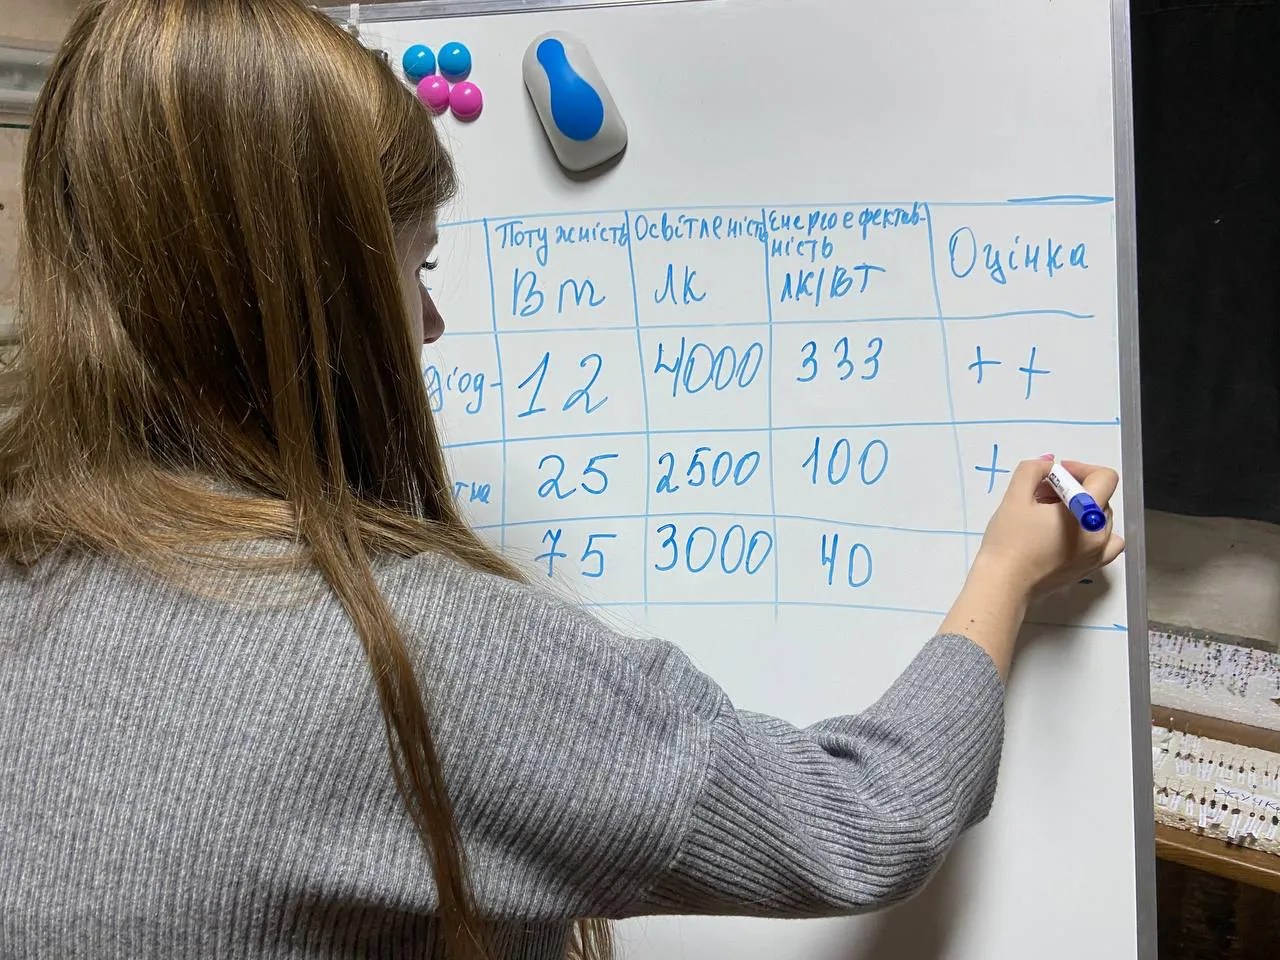 Потужність Освітленість Енергоефектив-
ність
Вт лк лк/Вт Оцінка
діод- 12 4000 333 ++
тна 25 2500 100 +
75 3000 40
жучк